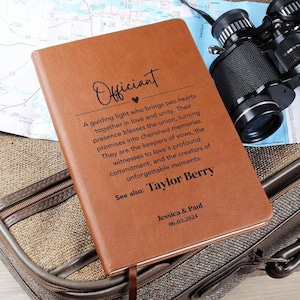 Officiant
A guiding light who brings two hearts
together in love and unity. Their
presence blesses the union, turning
promises into cherished memories.
They are the keepers of vows, the
witnesses to love's profound
commitment, and the creators of
unforgettable moments.
See also: Taylor Berry
Jessica & Paul
06.03.2024